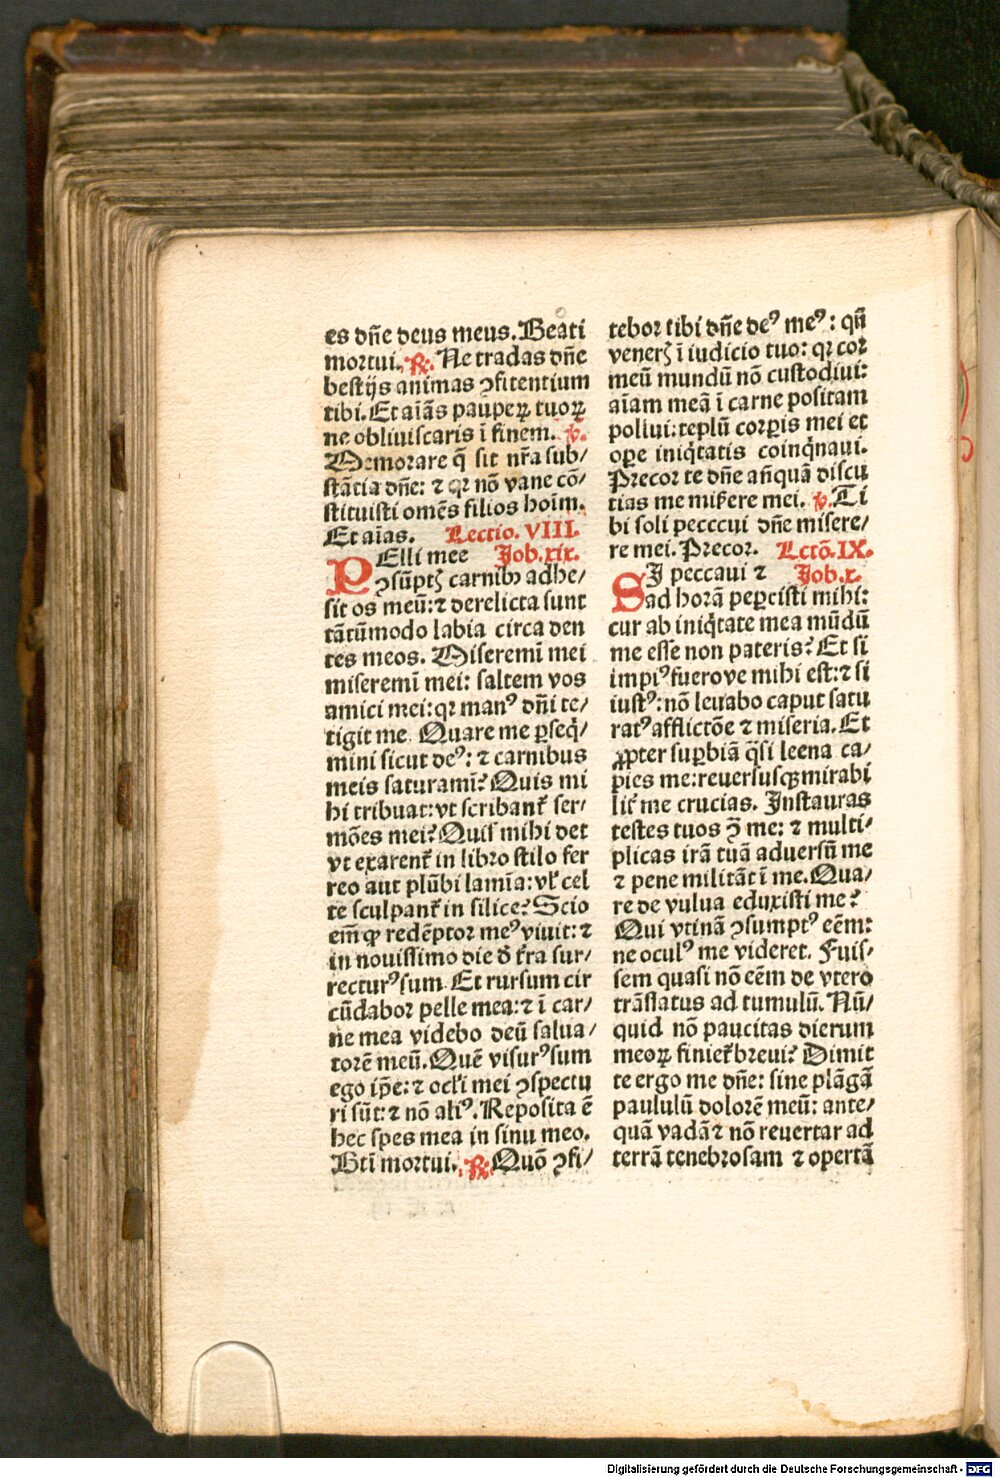 es dñe deus meus. Beati
mortui. ℟. Ne tradas dñe
bestijs animas ꝯfitentium
tibi. Et aīas pauperꝝ tuorꝝ
ne obliuiscaris ī finem. ℣.
Memorare q̄ sit nr̄a sub/
stātia dñe: ⁊ qꝛ nō vane cō/
stituisti omēs filios hoīm.
Et aīas. Lectio. VIII.
PElli mee Job. xix.
ꝯsūptꝭ carnibꝰ adhe/
sit os meū: ⁊ derelicta sunt
tātūmodo labia circa den
tes meos. Miseremī mei
miseremī mei: saltem vos
amici mei: qꝛ manꝰ dñi te/
tigit me. Quare me ꝑseq̄/
mini sicut deꝰ: ⁊ carnibus
meis saturamī? Quis mi
hi tribuat: vt scribant᷑ ser/
mōes mei? Quis mihi det
vt exarent᷑ in libro stilo fer
reo aut plūbi lamīa: vl̄ cel
te sculpant᷑ in silice? Scio
em̄ ꝙ redēptor meꝰ viuit: ⁊
in nouissimo die d̄ t̄ra sur/
recturꝰ sum. Et rursum cir
cūdabor pelle mea: ⁊ ī car/
ne mea videbo deū salua/
torē meū. Quē visurꝰ sum
ego ip̄e: ⁊ ocl̄i mei ꝯspectu
ri sūt: ⁊ nō aliꝰ. Reposita ē
hec spes mea in sinu meo.
Bt̄i mortui. ℟. Quō ꝯfi/
tebor tibi dñe deꝰ meꝰ: qn̄
venerꝭ ī iudicio tuo: qꝛ cor
meū mundū nō custodiui:
aīam meā ī carne positam
pollui: teplū corꝑis mei et
oꝑe iniq̄tatis coinq̄naui.
Precor te dñe añquā discu
tias me misere mei. ℣. Ti
bi soli pecccui dñe misere/
re mei. Precor. Lctō. IX.
SI peccaui ⁊ Job. x.
ad horā peꝑcisti mihi:
cur ab iniq̄tate mea mūdū
me esse non pateris? Et si
impiꝰ fuero ve mihi est: ⁊ si
iustꝰ: nō leuabo caput satu
ratꝰ afflictōe ⁊ miseria. Et
ꝓpter suꝑbiā q̄si leena ca/
pies me: reuersusqꝫ mirabi
lit᷑ me crucias. Instauras
testes tuos ꝯ̄ me: ⁊ multi/
plicas irā tuā aduersū me
⁊ pene militāt ī me. Qua/
re de vulua eduxisti me?
Qui vtinā ꝯsumptꝰ eēm:
ne oculꝰ me videret. Fuis/
sem quasi nō eēm de vtero
trāslatus ad tumulū. Nū/
quid nō paucitas dierum
meoꝝ finiet᷑ breui? Dimit
te ergo me dñe: sine plāgā
paululū dolorē meū: ante/
quā vadā ⁊ nō reuertar ad
terrā tenebrosam ⁊ opertā
Digitalisierung gefördert durch die Deutsche Forschungsgemeinschaft - DFG